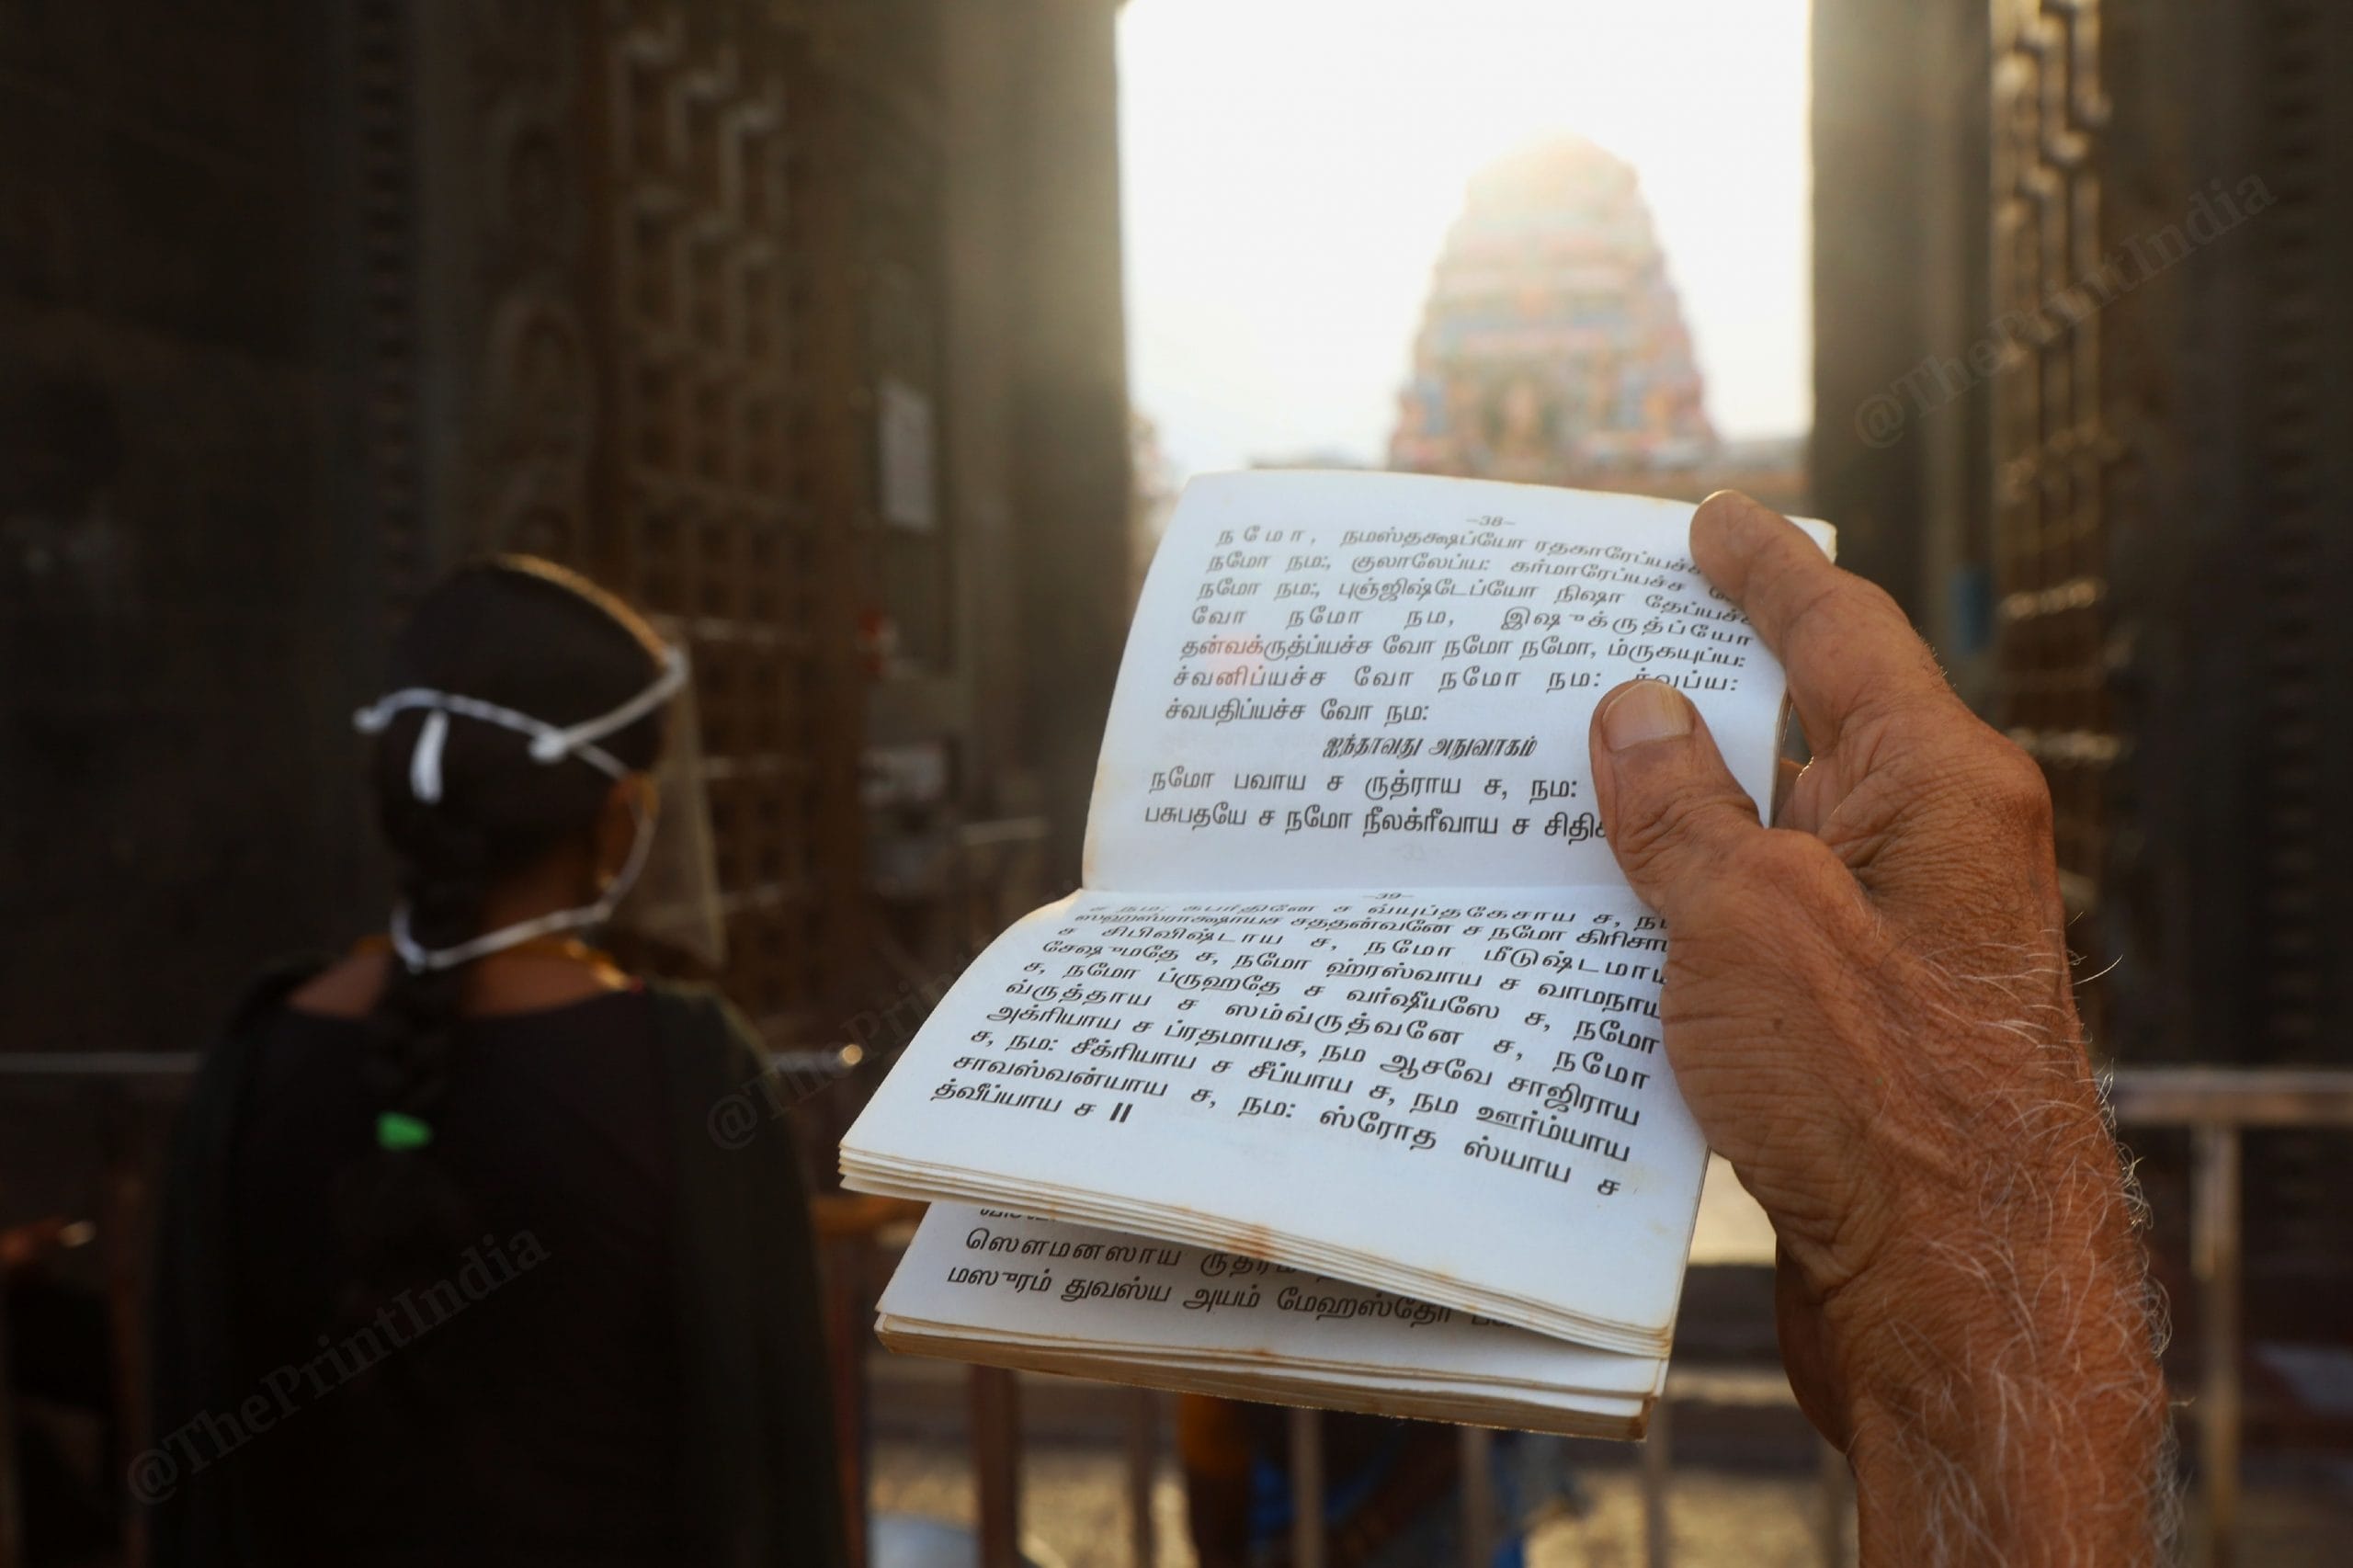 -38-
நமோ, நமஸ்தக்ஷப்யோ ரதகாரேப்யச்ச
நமோ நம:, குலாலேப்ய: கர்மாரேப்யச்ச
நமோ நம:, புஞ்ஜிஷ்டேப்யோ நிஷா தேப்யச்ச
வோ நமோ நம, இஷுக்ருத்ப்யோ
தன்வக்ருத்ப்யச்ச வோ நமோ நமோ, ம்ருகயுப்ய:
ச்வனிப்யச்ச வோ நமோ நம: ச்வப்ய:
ச்வபதிப்யச்ச வோ நம:
ஐந்தாவது அநுவாகம்
நமோ பவாய ச ருத்ராய ச, நம:
பசுபதயே ச நமோ நீலக்ரீவாய ச
-39-
ச நம: கபர்தினே ச வ்யுப்தகேசாய ச,
ஸஹஸ்ராக்ஷாயச சததன்வனே ச நமோ
ச சிபிவிஷ்டாய ச, நமோ மீடுஷ்டமாய
சேஷுமதே ச, நமோ ஹ்ரஸ்வாய ச வாமநாய
ச, நமோ ப்ருஹதே ச வர்ஷீயஸே ச, நமோ
வ்ருத்தாய ச ஸம்வ்ருத்வனே ச, நமோ
அக்ரியாய ச ப்ரதமாயச, நம ஆசவே சாஜிராய
ச, நம: சீக்ரியாய ச சீப்யாய ச, நம ஊர்ம்யாய
சாவஸ்வன்யாய ச, நம: ஸ்ரோத ஸ்யாய ச
த்வீப்யாய ச ||
ஸௌமனஸாய
மஸுரம் துவஸ்ய அயம் மேஹஸ்தோ
@ThePrintIndia
@ThePrintIndia
@ThePrintIndia